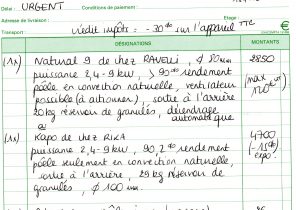 Délai : URGENT Conditions de paiement :
Livraison :
Etage :
Transport :
crédit impôts : - 30% sur l'appareil TTC
DÉSIGNATIONS MONTANTS
(1x) Natural 9 de chez RAVELLI, 2850
puissance 2,4-9 kw, > 90% rendement
poêle en convection naturelle, ventilateur (max
possible (à actionner), sortie à l'arrière
20kg réservoir de granulés, démarrage
automatique
ou
(1x) Kapo de chez RIKA 4700
puissance 2,4-9 kw, 90,2% rendement (-15%
poêle seulement en convection naturelle, expo.
sortie à l'arrière, 29kg réservoir de
granulés, ϕ 100 mm.